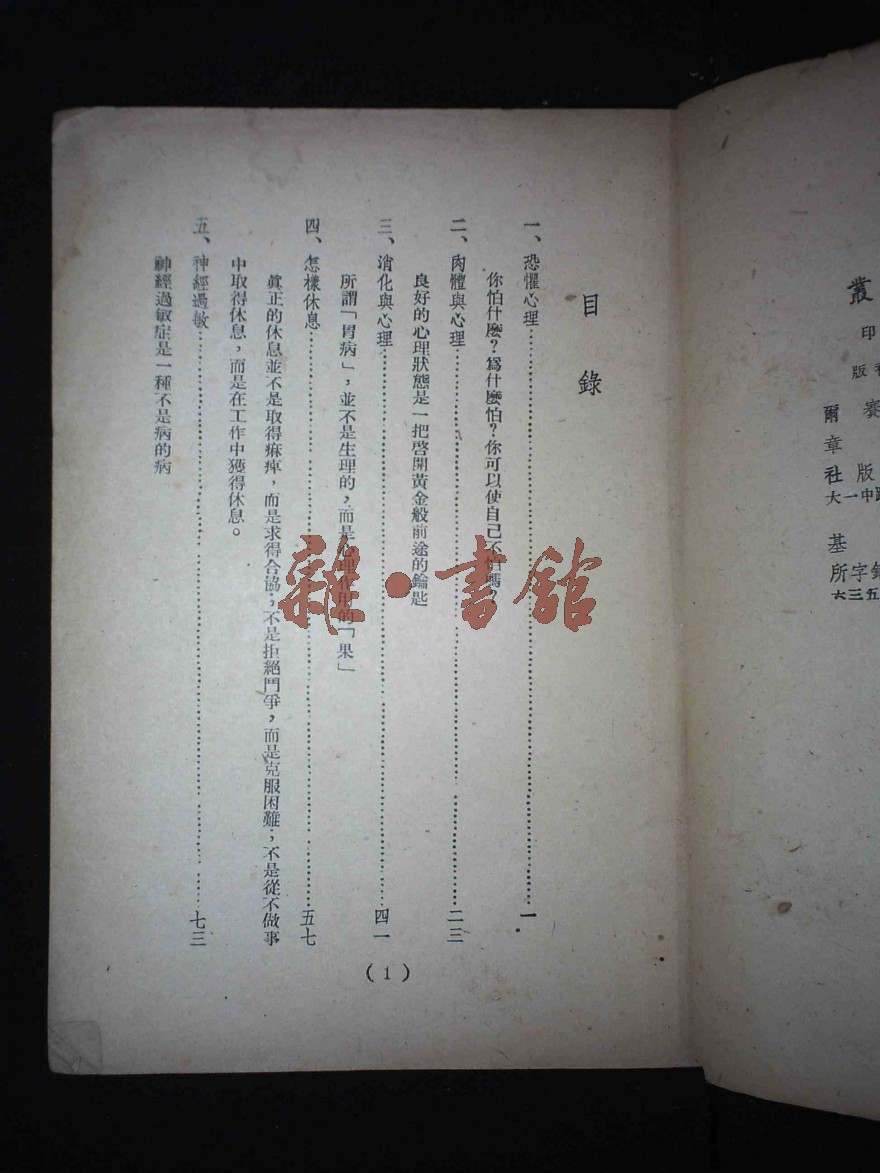 目錄
一、恐懼心理……一
你怕什麼？爲什麼怕？你可以使自己不怕嗎？
二、肉體與心理……二三
良好的心理狀態是一把啓開黃金般前途的鑰匙
三、消化與心理……四一
所謂「胃病」，並不是生理的，而是心理作用的「果」
四、怎樣休息……五七
眞正的休息並不是取得痳痺，而是求得合協；不是拒絕鬥爭，而是克服困難；不是從不做事
中取得休息，而是在工作中獲得休息。
五、神經過敏……七三
神經過敏症是一種不是病的病
(1)
雜·書館
叢
印
版
賽
爾
章
版
社
中一大
基
所字
六三五